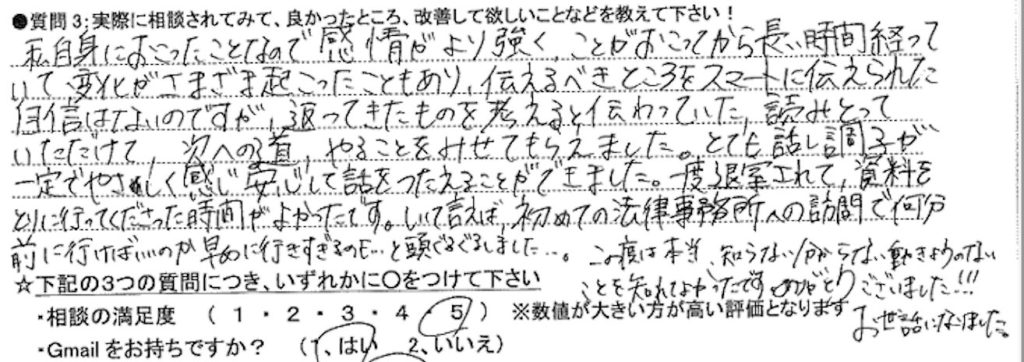 ●質問3:実際に相談されてみて、良かったところ、改善して欲しいことなどを教えて下さい!
私自身におこったことなので感情がより強く、ことがおこってから長い時間経って
いて変化がさまざま起こったこともあり、伝えるべきところをスマートに伝えられた
自信はないのですが、返ってきたものを考えると伝わっていた、読みとって
いただけて、次への道、やることをみせてもらえました。とても話し調子が
一定でやさしく感じ安心して話をつたえることができました。一度退室されて、資料を
とりに行ってくださった時間がよかったです。しいて言えば、初めての法律事務所への訪問で何分
前に行けばいいのか早めに行きすぎるのも…と頭ぐるぐるしました…。この度は本当、知らない/分からない動きようのない
ことを知れてよかったです。ありがとうございました!!!
お世話になりました。
☆下記の3つの質問につき、いずれかに〇をつけて下さい
・相談の満足度 (1・2・3・4・5) ※数値が大きい方が高い評価となります
・Gmailをお持ちですか? (1、はい 2、いいえ)